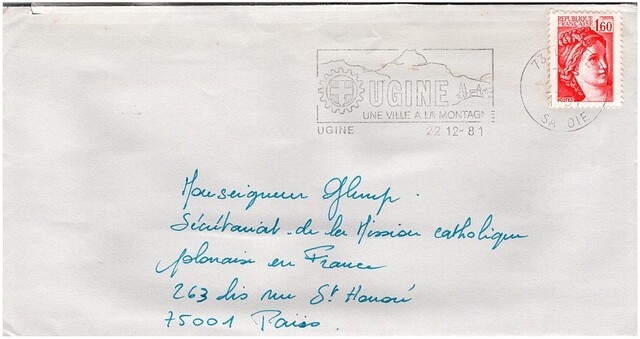 REPUBLIQUE
FRANÇAISE
1,60
UGINE
UNE VILLE A LA MONTAGNE
UGINE 22 12-81
73
SAVOIE
Monseigneur Glemp.
Sécrétariat de la Mission catholique
polonaise en France
263 bis rue St Honoré
75001 Paris.